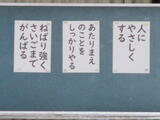 人に
やさしく
する
あたりまえ
のことを
しっかりやる
ねばり強く
さいごまで
がんばる